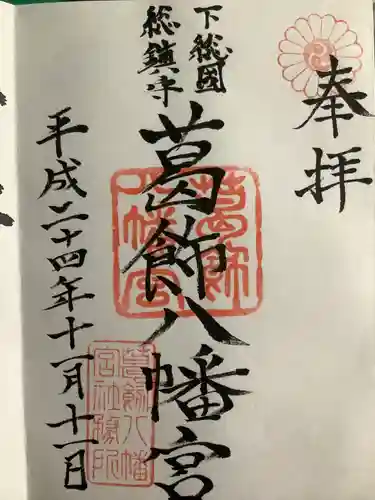 奉拝
下総國
総鎮守
葛飾八幡宮
平成二十四年十一月十一日
葛飾
八幡宮
葛飾八幡
宮社務所